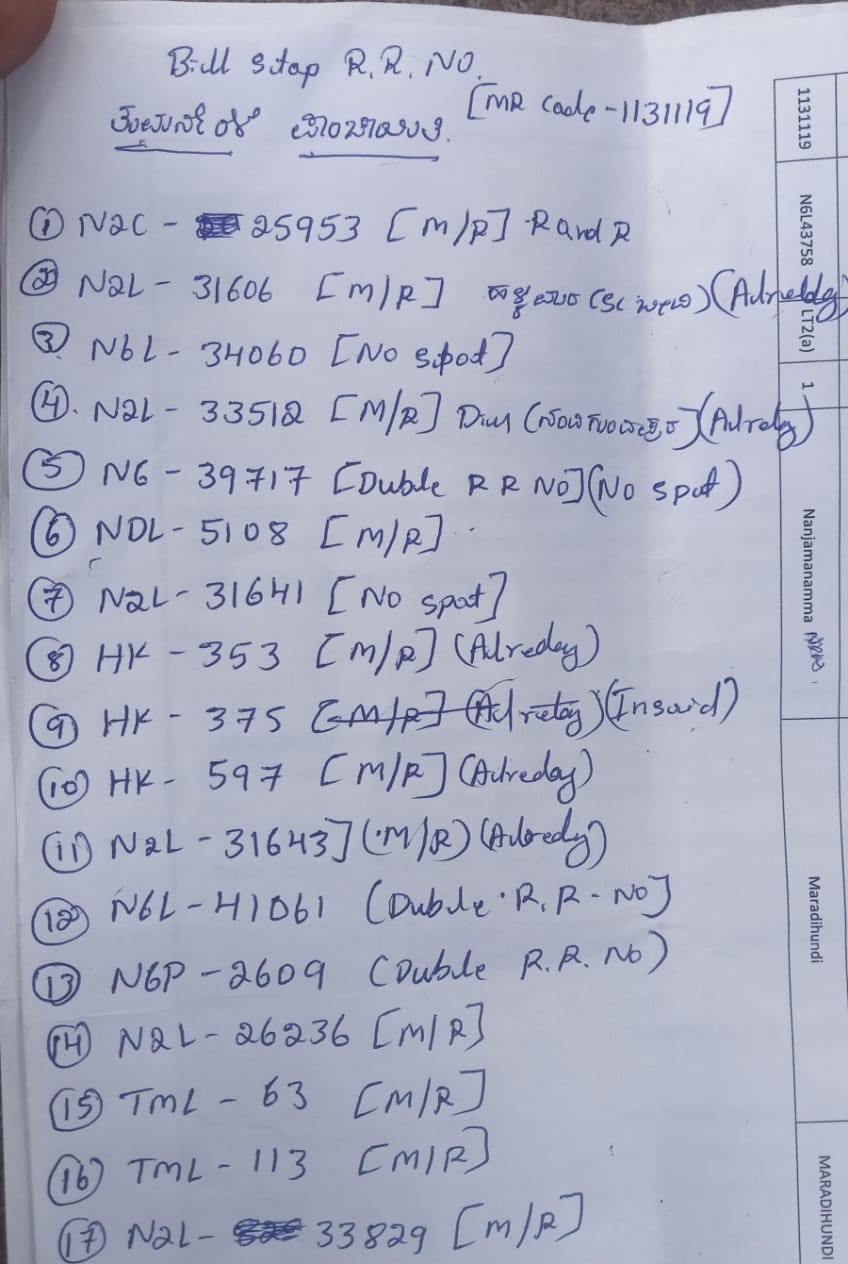 Bill Stop R.R. NO.
[MR Code-1131119]
① N2C - 25953 [M/R] R and R
② N2L - 31606 [M/R]
③ N6L - 34060 [No spot]
④. N2L - 33512 [M/R]
⑤ N6 - 39717 [Duble R R NO](No spot)
⑥ NDL - 5108 [M/R]
⑦ N2L - 31641 [No spot]
⑧ HK - 353 [M/R] (Alredey)
⑨ HK - 375 (Insaid)
⑩ HK - 597 [M/R] (Alreday)
⑪ N2L - 31643] (M/R) (Alredy)
⑫ N6L - 41061 (Duble R.R - No]
⑬ N6P - 2609 (Duble R.R. No)
⑭ N2L - 26236 [M/R]
⑮ TML - 63 [M/R]
⑯ TML - 113 [M/R]
⑰ N2L - 33829 [M/R]
1131119
N6L43758
LT2(a)
1
Nanjamanamma
Maradihundi
MARADIHUNDI